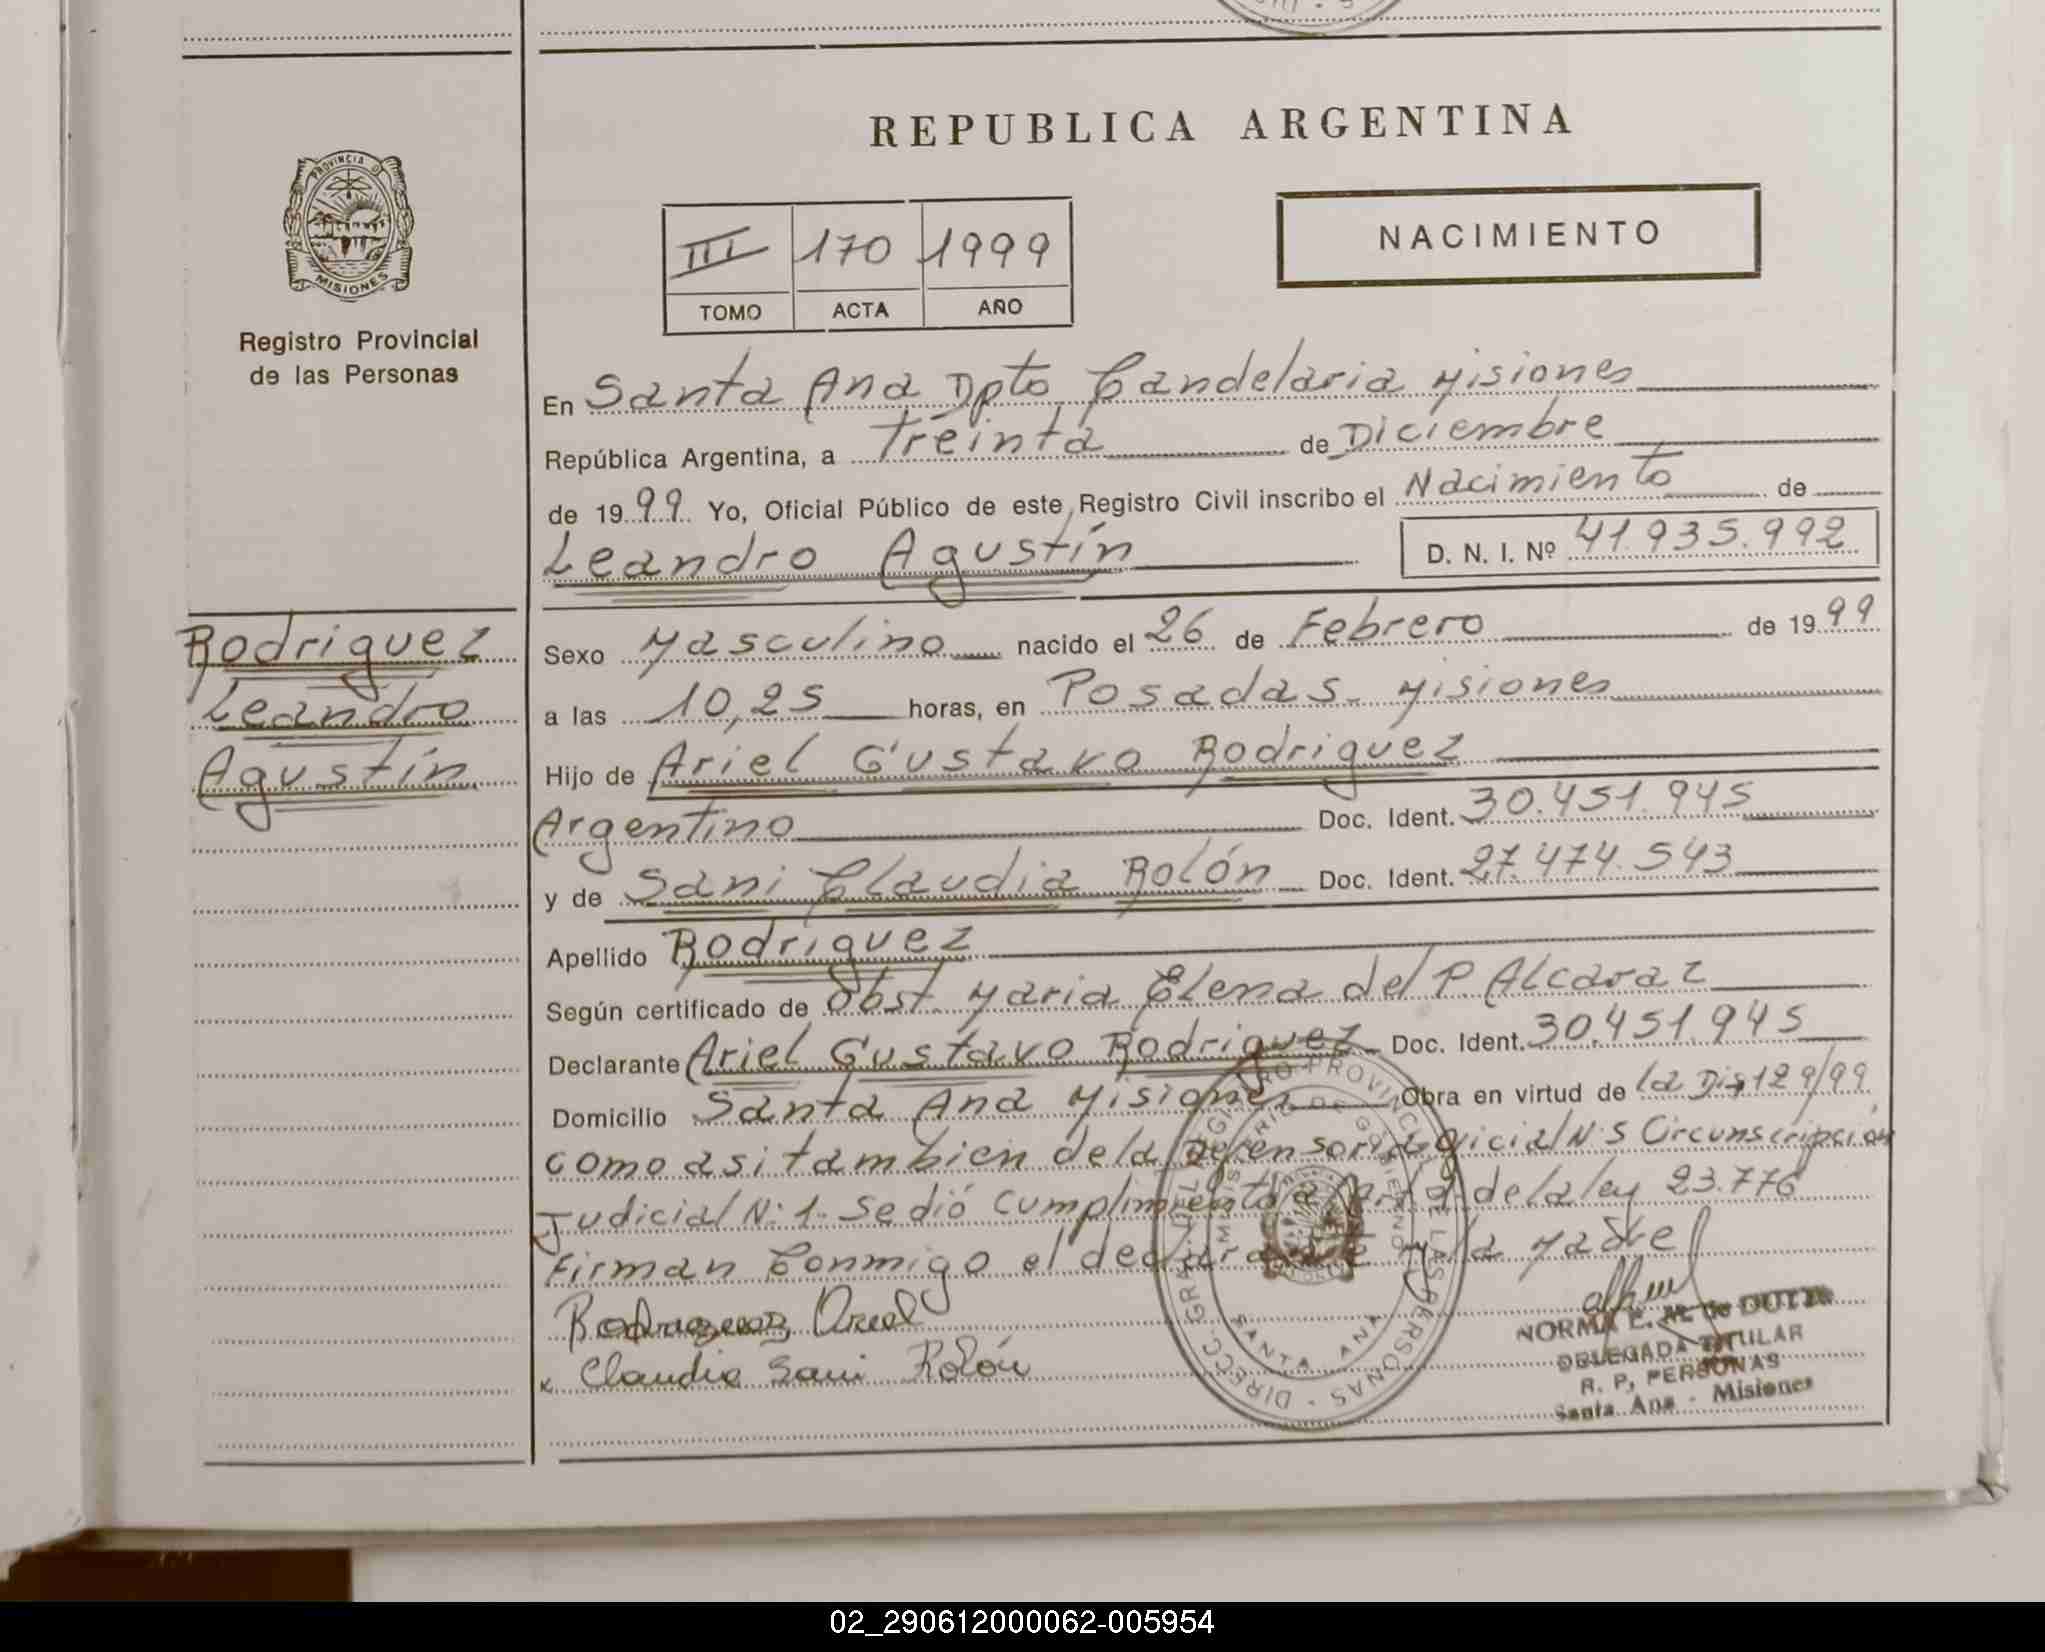 REPUBLICA ARGENTINA
PROVINCIA DE
MISIONES
Registro Provincial
de las Personas
III 170 1999
TOMO ACTA AÑO
NACIMIENTO
En Santa Ana Dpto Candelaria Misiones
República Argentina, a Treinta de Diciembre
de 1999 Yo, Oficial Público de este Registro Civil inscribo el Nacimiento de
Leandro Agustín D. N. I. Nº 41.935.992
Rodriguez
Leandro
Agustín
Sexo Masculino nacido el 26 de Febrero de 1999
a las 10,25 horas, en Posadas - Misiones
Hijo de Ariel Gustavo Rodriguez
Argentino Doc. Ident. 30.451.945
y de Sani Claudia Rolón Doc. Ident. 27.474.543
Apellido Rodriguez
Según certificado de Obst. Maria Elena del P. Alcaraz
Declarante Ariel Gustavo Rodriguez Doc. Ident. 30.451.945
Domicilio Santa Ana Misiones Obra en virtud de la Dis 129/99
como asi tambien de la Defensoria Oficial N: 5 Circunscripción
Judicial N: 1. Se dió cumplimiento a de la ley 23.776
Firman Conmigo el declarante y la Madre
Rodriguez Ariel
x Claudia Sani Rolón
DIRECC. GRAL. DEL REGISTRO PROVINCIAL DE LAS PERSONAS
MINISTERIO DE GOBIERNO
SANTA ANA
NORMA E. M. de DUTRA
DELEGADA TITULAR
R. P. PERSONAS
Santa Ana - Misiones
02_290612000062-005954